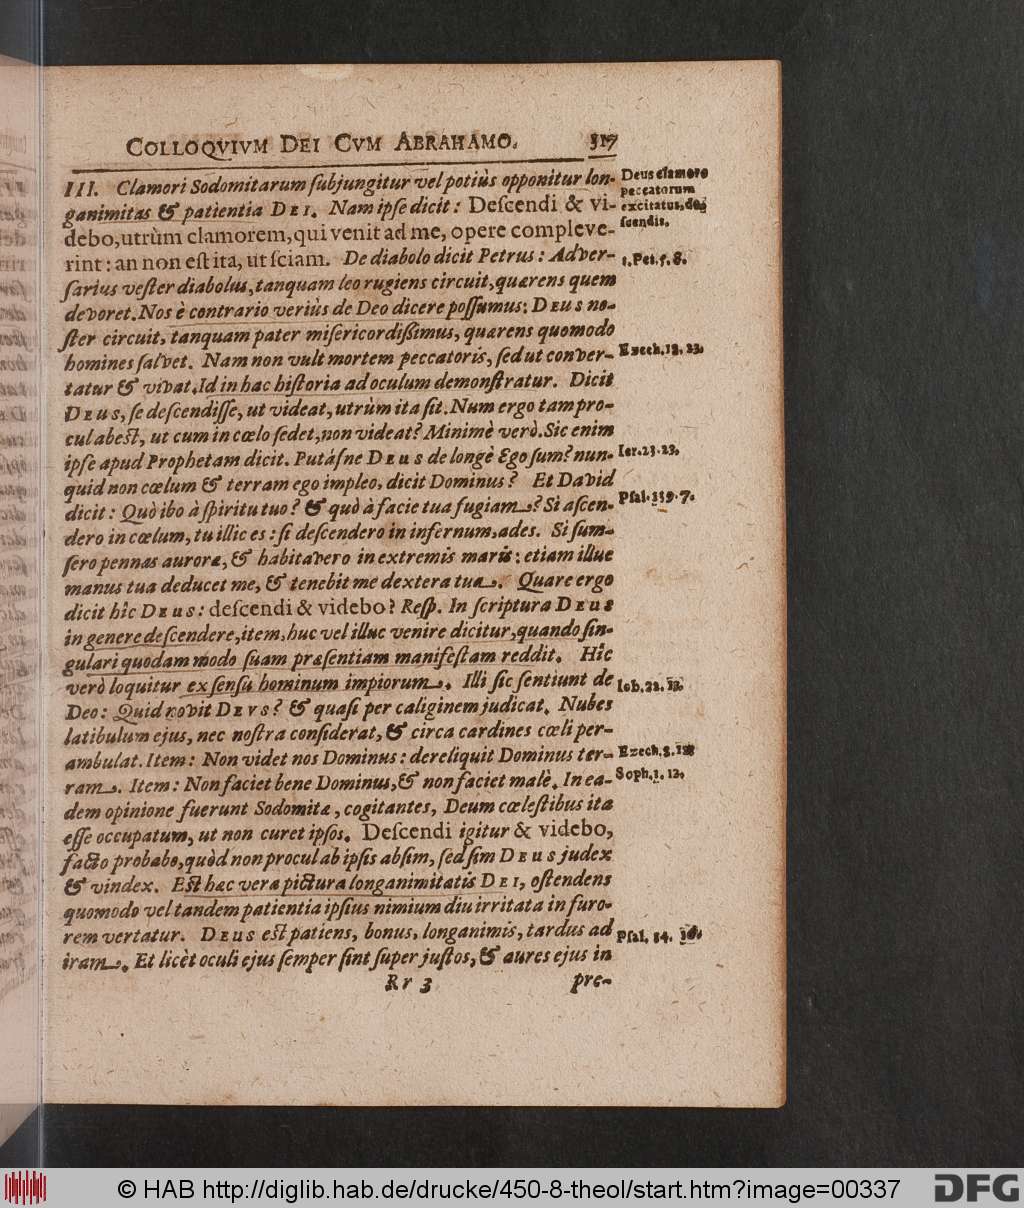 COLLOQVIVM DEI CVM ABRAHAMO. 317
III. Clamori Sodomitarum ſubjungitur vel potiùs opponitur lon-
ganimitas & patientia DEI. Nam ipſe dicit: Deſcendi & vi-
debo, utrùm clamorem, qui venit ad me, opere compleve-
rint: an non eſt ita, ut ſciam. De diabolo dicit Petrus: Adver-
ſarius veſter diabolus, tanquam leo rugiens circuit, quærens quem
devoret. Nos è contrario veriùs de Deo dicere poſſumus: DEUS no-
ſter circuit, tanquam pater miſericordißimus, quærens quomodo
homines ſalvet. Nam non vult mortem peccatoris, ſed ut conver-
tatur & vivat. Id in hac hiſtoria ad oculum demonſtratur. Dicit
DEUS, ſe deſcendiſſe, ut videat, utrùm ita ſit. Num ergo tam pro-
cul abeſt, ut cum in cœlo ſedet, non videat? Minimè verò. Sic enim
ipſe apud Prophetam dicit. Putáſne DEUS de longè Ego ſum? nun-
quid non cœlum & terram ego impleo, dicit Dominus? Et David
dicit: Quò ibo à ſpiritu tuo? & quò à facie tua fugiam? Si aſcen-
dero in cœlum, tu illic es: ſi deſcendero in infernum, ades. Si ſum-
ſero pennas auroræ, & habitavero in extremis maris: etiam illuc
manus tua deducet me, & tenebit me dextera tua. Quare ergo
dicit hîc DEUS: deſcendi & videbo? Reſp. In ſcriptura DEUS
in genere deſcendere, item, huc vel illuc venire dicitur, quando ſin-
gulari quodam modo ſuam præſentiam manifeſtam reddit. Hîc
verò loquitur ex ſenſu hominum impiorum. Illi ſic ſentiunt de
Deo: Quid novit DEVS? & quaſi per caliginem judicat. Nubes
latibulum ejus, nec noſtra conſiderat, & circa cardines cœli per-
ambulat. Item: Non videt nos Dominus: dereliquit Dominus ter-
ram. Item: Non faciet bene Dominus, & non faciet malè. In ea-
dem opinione fuerunt Sodomitæ, cogitantes, Deum cœleſtibus ita
eſſe occupatum, ut non curet ipſos. Deſcendi igitur & videbo,
facto probabo, quòd non procul ab ipſis abſim, ſed ſim DEUS judex
& vindex. Eſt hæc vera pictura longanimitatis DEI, oſtendens
quomodo vel tandem patientia ipſius nimium diu irritata in furo-
rem vertatur. DEUS eſt patiens, bonus, longanimis, tardus ad
iram. Et licèt oculi ejus ſemper ſint ſuper juſtos, & aures ejus in
Rr 3 pre-
Deus clamore
peccatorum
excitatus, deſ
ſcendit.
1. Pet. 5. 8.
Ezech. 18. 23.
Ier. 23. 23.
Pſal. 139. 7.
Iob. 22. 13.
Ezech. 8. 12.
Soph. 1. 12.
Pſal. 34. 16.
© HAB http://diglib.hab.de/drucke/450-8-theol/start.htm?image=00337
DFG